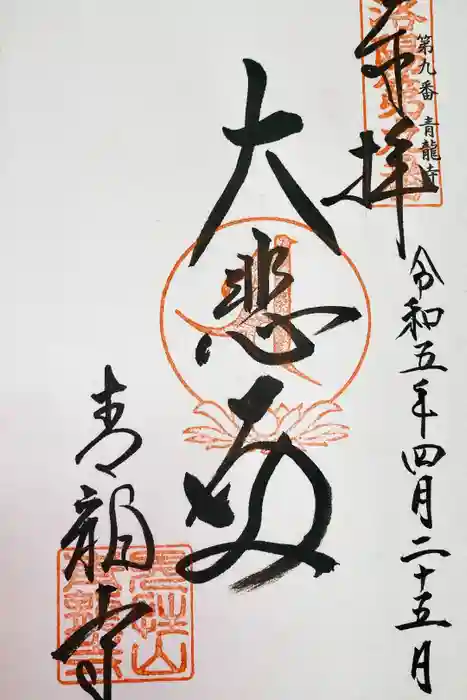 第九番 青龍寺
奉拝
令和五年四月二十五日
大悲殿
青龍寺